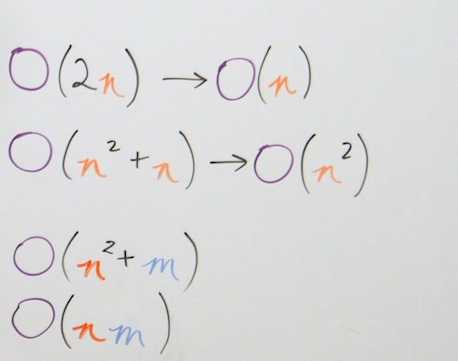 O(2n) → O(n)
O(n² + n) → O(n²)
O(n² + m)
O(nm)